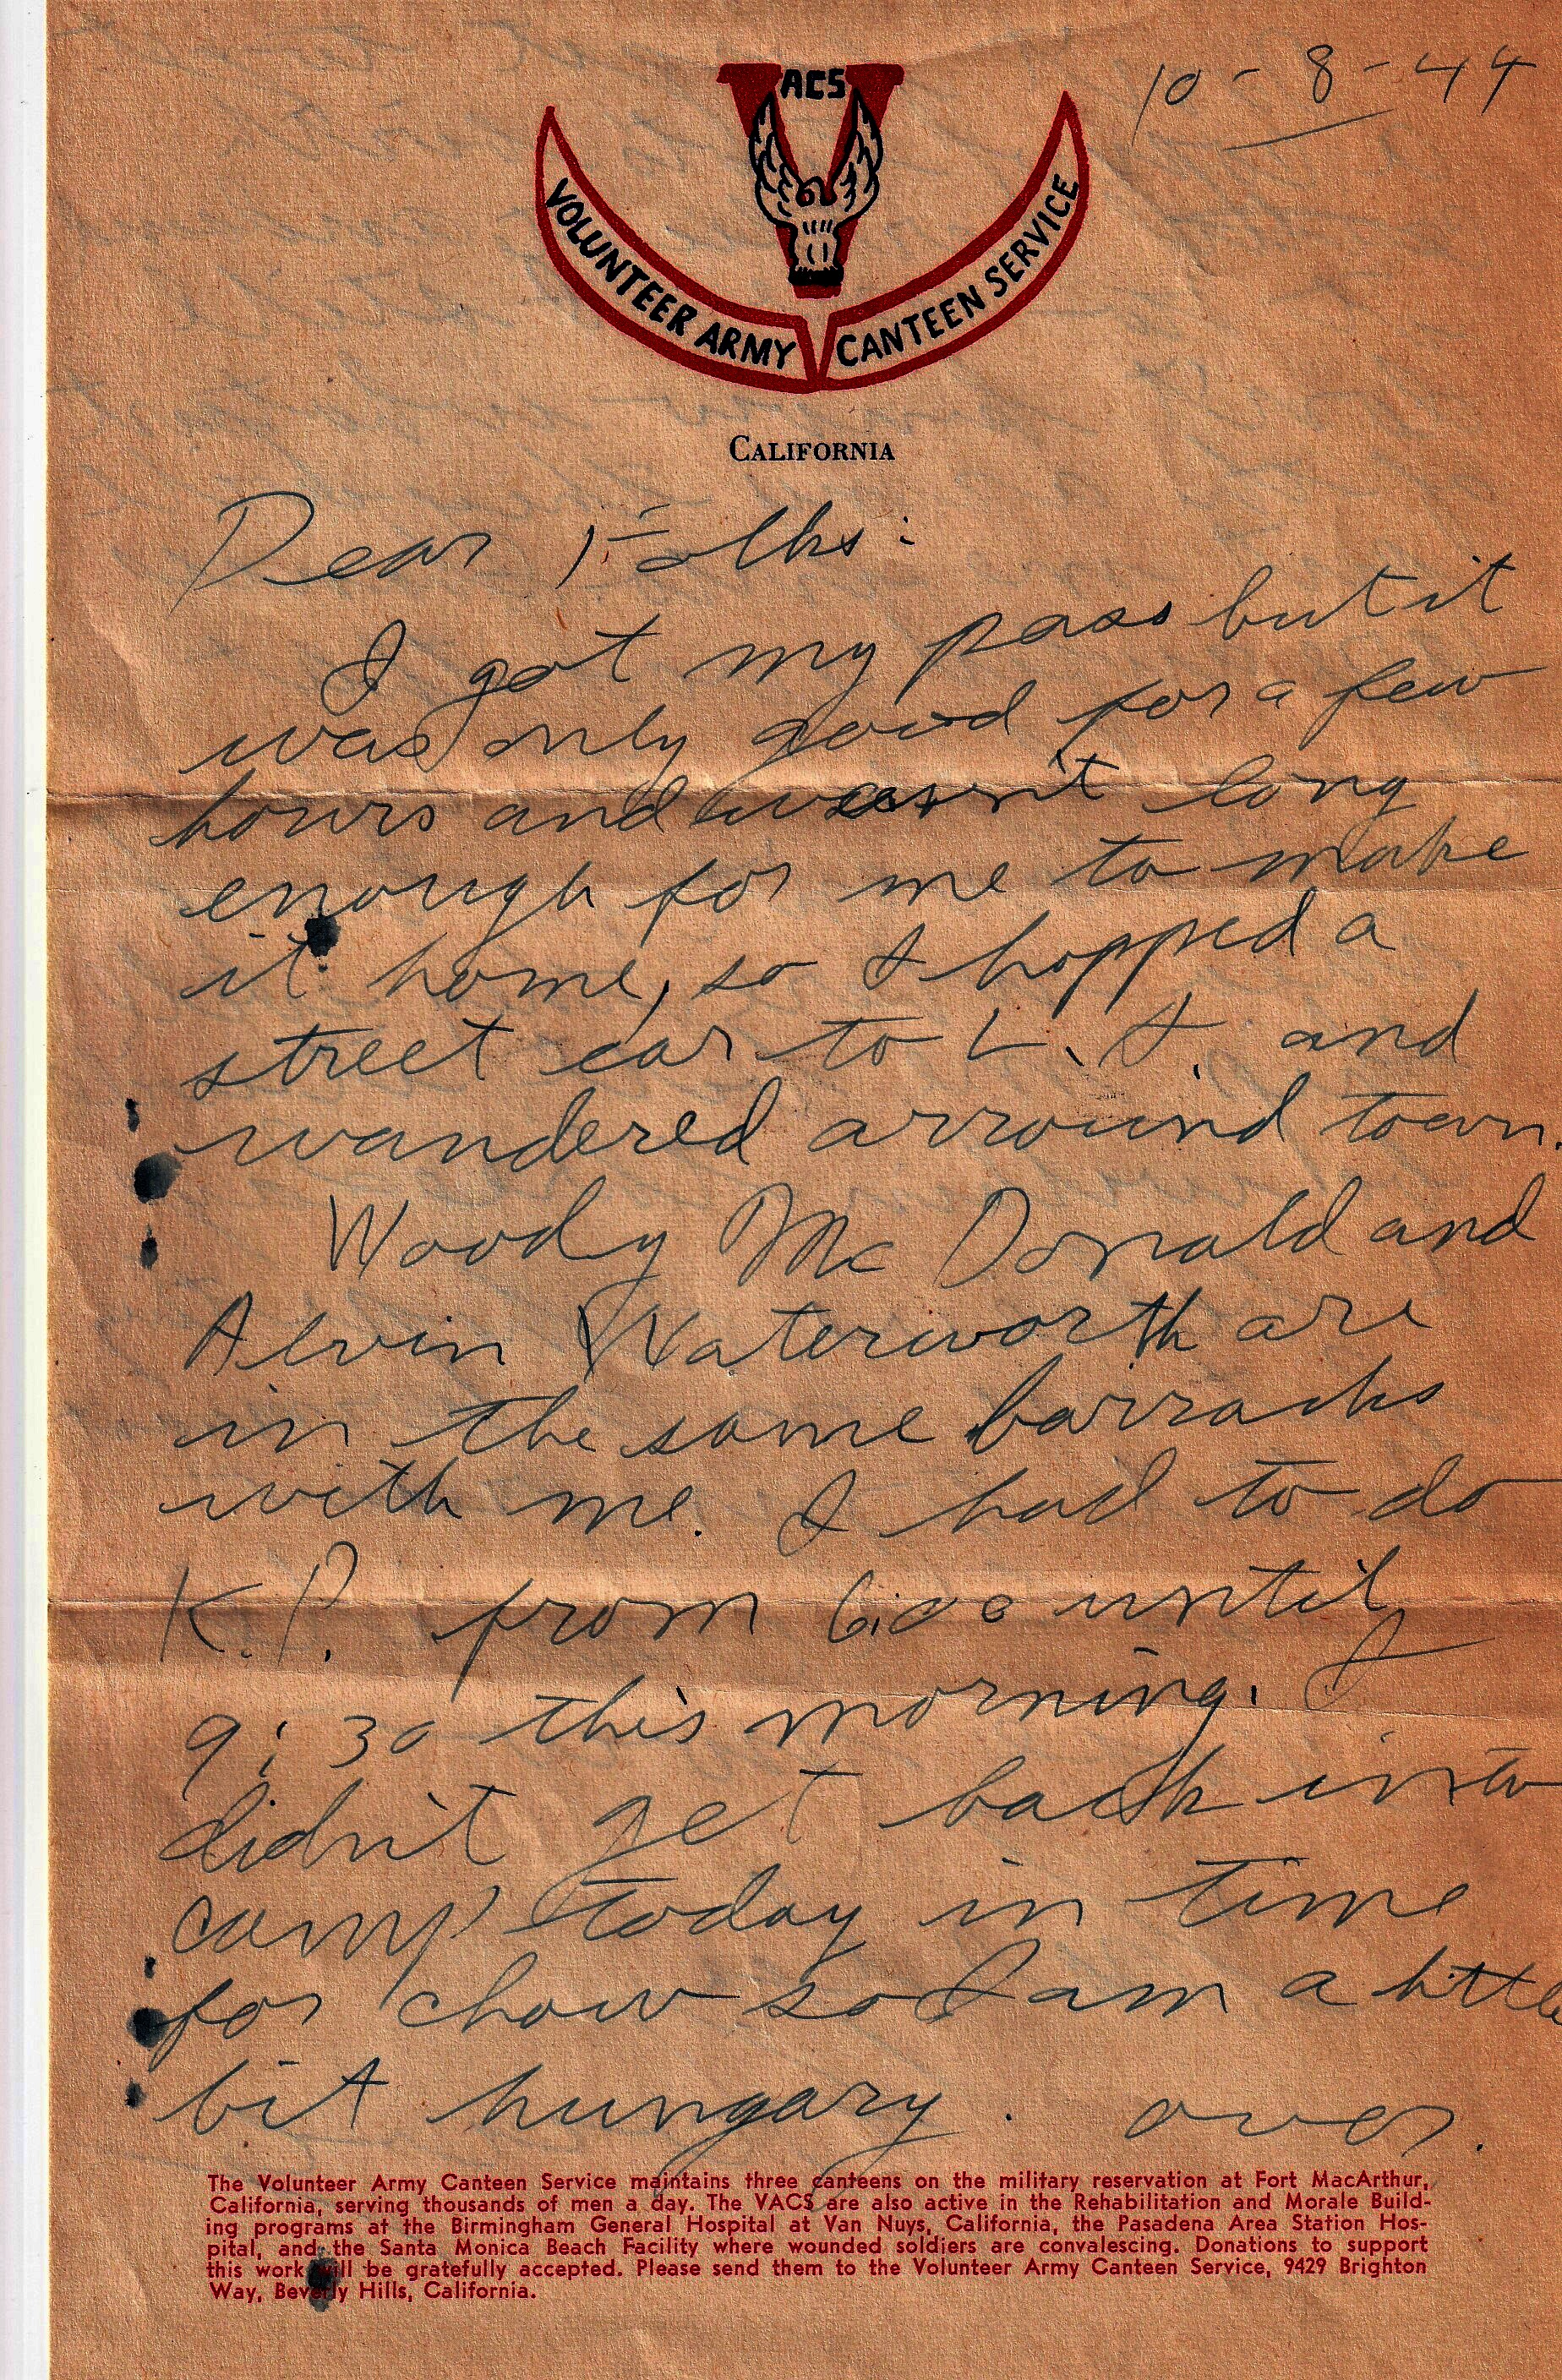 10-8-44
ACS
VOLUNTEER ARMY CANTEEN SERVICE
CALIFORNIA
Dear Folks:
I got my pass but it
was only good for a few
hours and wasn't long
enough for me to make
it home, so I hopped a
street car to L.A. and
wandered arround town.
Woody Mc Donald and
Alvin Waterworth are
in the same barracks
with me. I had to do
K.P. from 6:00 until
9:30 this morning. I
didn't get back into
camp today in time
for chow so I am a little
bit hungary. over.
The Volunteer Army Canteen Service maintains three canteens on the military reservation at Fort MacArthur,
California, serving thousands of men a day. The VACS are also active in the Rehabilitation and Morale Build-
ing programs at the Birmingham General Hospital at Van Nuys, California, the Pasadena Area Station Hos-
pital, and the Santa Monica Beach Facility where wounded soldiers are convalescing. Donations to support
this work will be gratefully accepted. Please send them to the Volunteer Army Canteen Service, 9429 Brighton
Way, Beverly Hills, California.